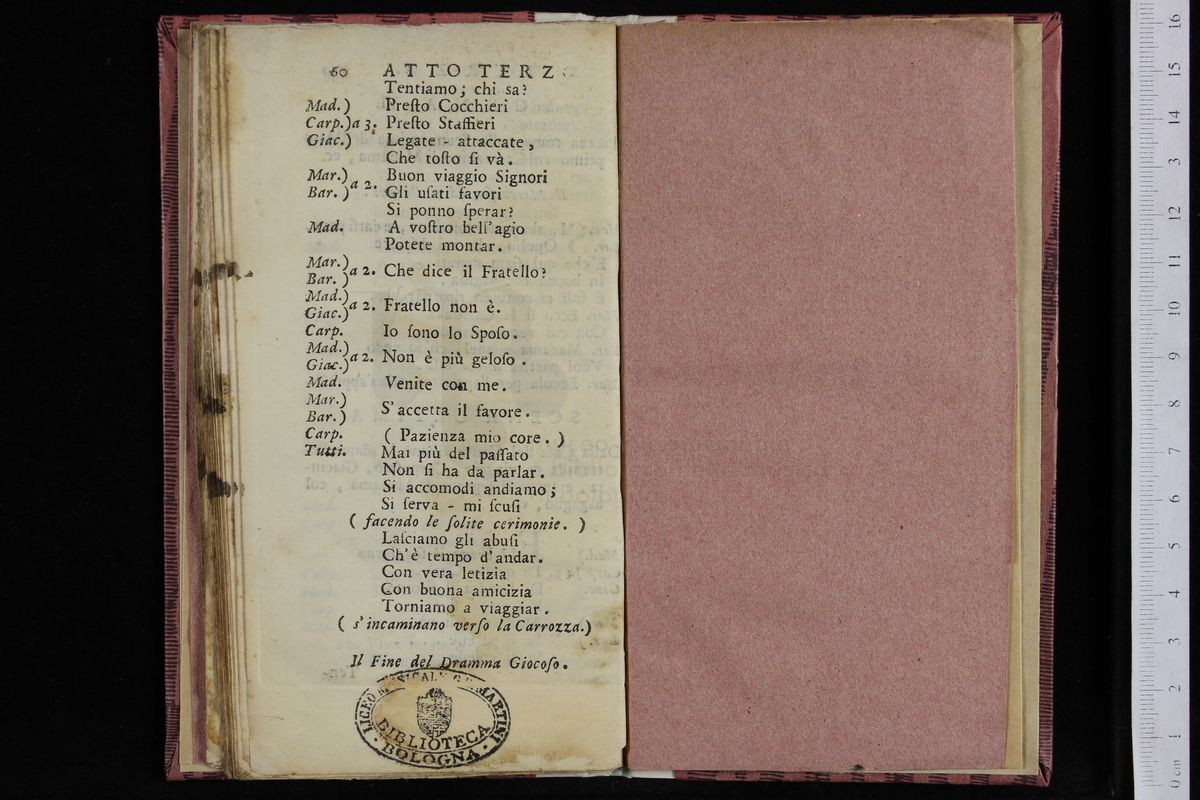 60 ATTO TERZ
Tentiamo; chi sa?
Mad.) Preſto Cocchieri
Carp.)a 3. Preſto Staffieri
Giac.) Legate - attaccate,
Che toſto ſi và.
Mar.) Buon viaggio Signori
Bar. )a 2. Gli uſati favori
Si ponno ſperar?
Mad. A voſtro bell'agio
Potete montar.
Mar.)
Bar. )a 2. Che dice il Fratello?
Mad.)
Giac.)a 2. Fratello non è.
Carp. Io ſono lo Spoſo.
Mad.)
Giac.)a 2. Non è più geloſo.
Mad. Venite con me.
Mar.)
Bar. ) S'accetta il favore.
Carp. ( Pazienza mio core. )
Tutti. Mai più del paſſato
Non ſi ha da parlar.
Si accomodi andiamo;
Si ſerva - mi ſcuſi
( facendo le ſolite cerimonie. )
Laſciamo gli abuſi
Ch'è tempo d'andar.
Con vera letizia
Con buona amicizia
Torniamo a viaggiar.
( s'incaminano verſo la Carrozza.)
Il Fine del Dramma Giocoſo.
LICEO MUSICALE G.B. MARTINI
BIBLIOTECA
BOLOGNA
0 cm 1 2 3 4 5 6 7 8 9 10 11 12 3 14 15 16